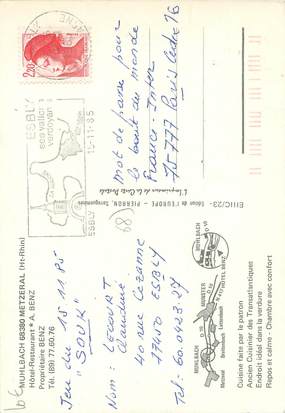 MUHLBACH 68380 METZERAL (Ht-Rhin)
Hôtel-Restaurant * A. BENZ
Propriétaire BENZ
Tél. (89) 77.60.76
Jeu du 15 11 85
"SOUK"
Nom : LECOURT
Claudine
40 rue Cezanne
77450 ESBLY
Tel. 60.04.23.27
(68)
Mot de passe pour
le bruit du monde
France-Inter
75777 Paris cedex 16
2,20
ESBLY
ses vallons
verdoyants
15-11-85
ESBLY
EIIIC/23 - Edition de l'EUROPE - PIERRON, Sarreguemines
MUHLBACH
HOTEL BENZ
MUNSTER
MUHLBACH
Metzeral
Cuisine faite par le patron
Ancien Cuisinier des Transatlantiques
Endroit idéal dans la verdure
Repos et calme - Chambre avec confort